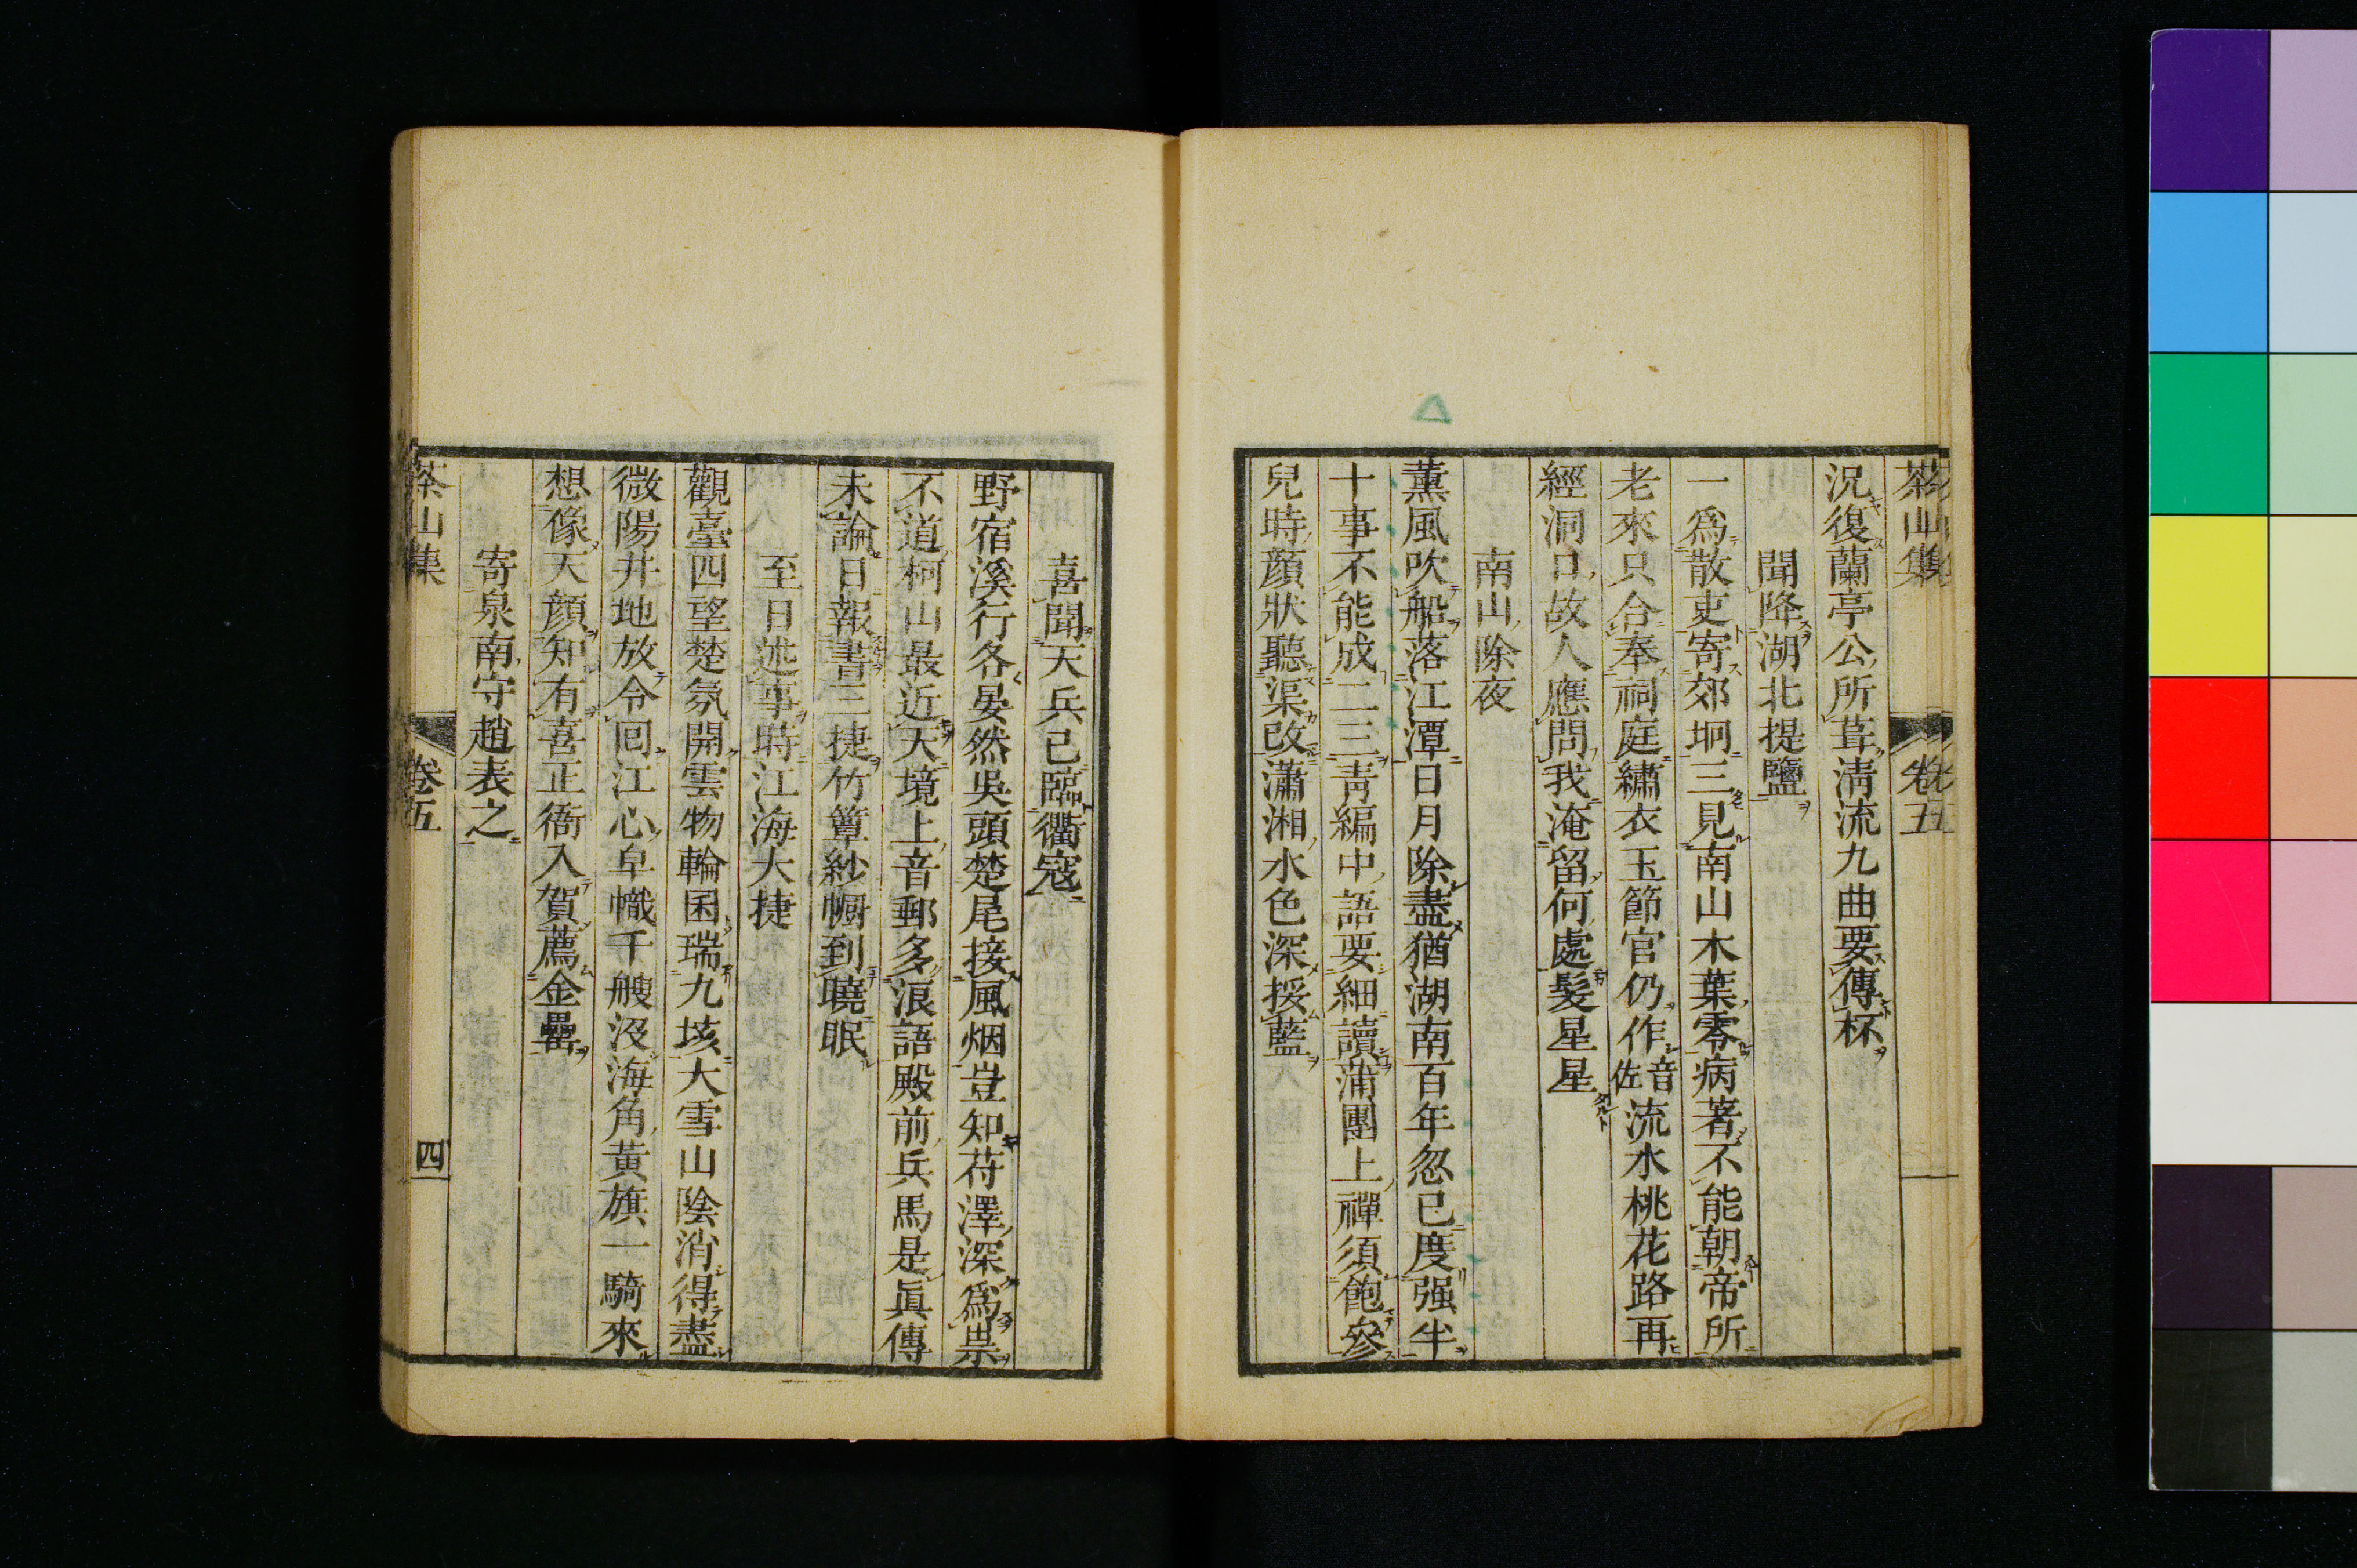 茶山集 卷五
況復蘭亭公所葺淸流九曲要傳杯
聞降湖北提鹽
一爲散吏寄郊坰三見南山木葉零病著不能朝帝所
老來只合奉祠庭繡衣玉節官仍作音佐流水桃花路再
經洞口故人應問我淹留何處髮星星
南山除夜
薰風吹船落江潭日月除盡猶湖南百年忽已度强半
十事不能成二三靑編中語要細讀蒲團上禪須飽參
兒時顏狀聽渠改瀟湘水色深挼藍
喜聞天兵已臨衢寇
野宿溪行各晏然吳頭楚尾接風烟豈知苻澤深爲祟
不道柯山最近天境上音郵多浪語殿前兵馬是眞傳
未論日報書三捷竹簟紗幮到曉眠
至日述事時江海大捷
觀臺四望楚氛開雲物輪囷瑞九垓大雪山陰消得盡
微陽井地放令回江心皁幟千艘沒海角黃旗一騎來
想像天顏知有喜正衙入賀薦金罍
寄泉南守趙表之
茶山集 卷五 四